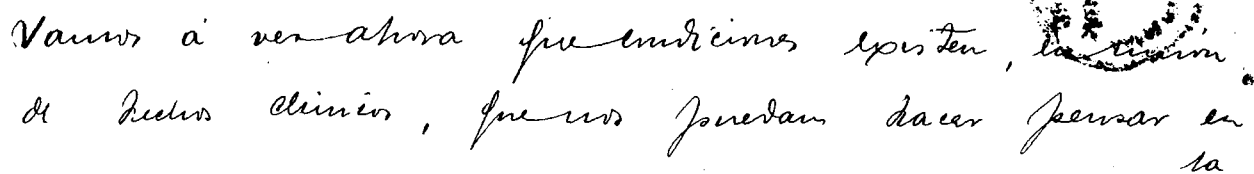 Vamos á ver ahora que condiciones existen, la reunión
de hechos clinicos, que nos puedan hacer pensar en
la